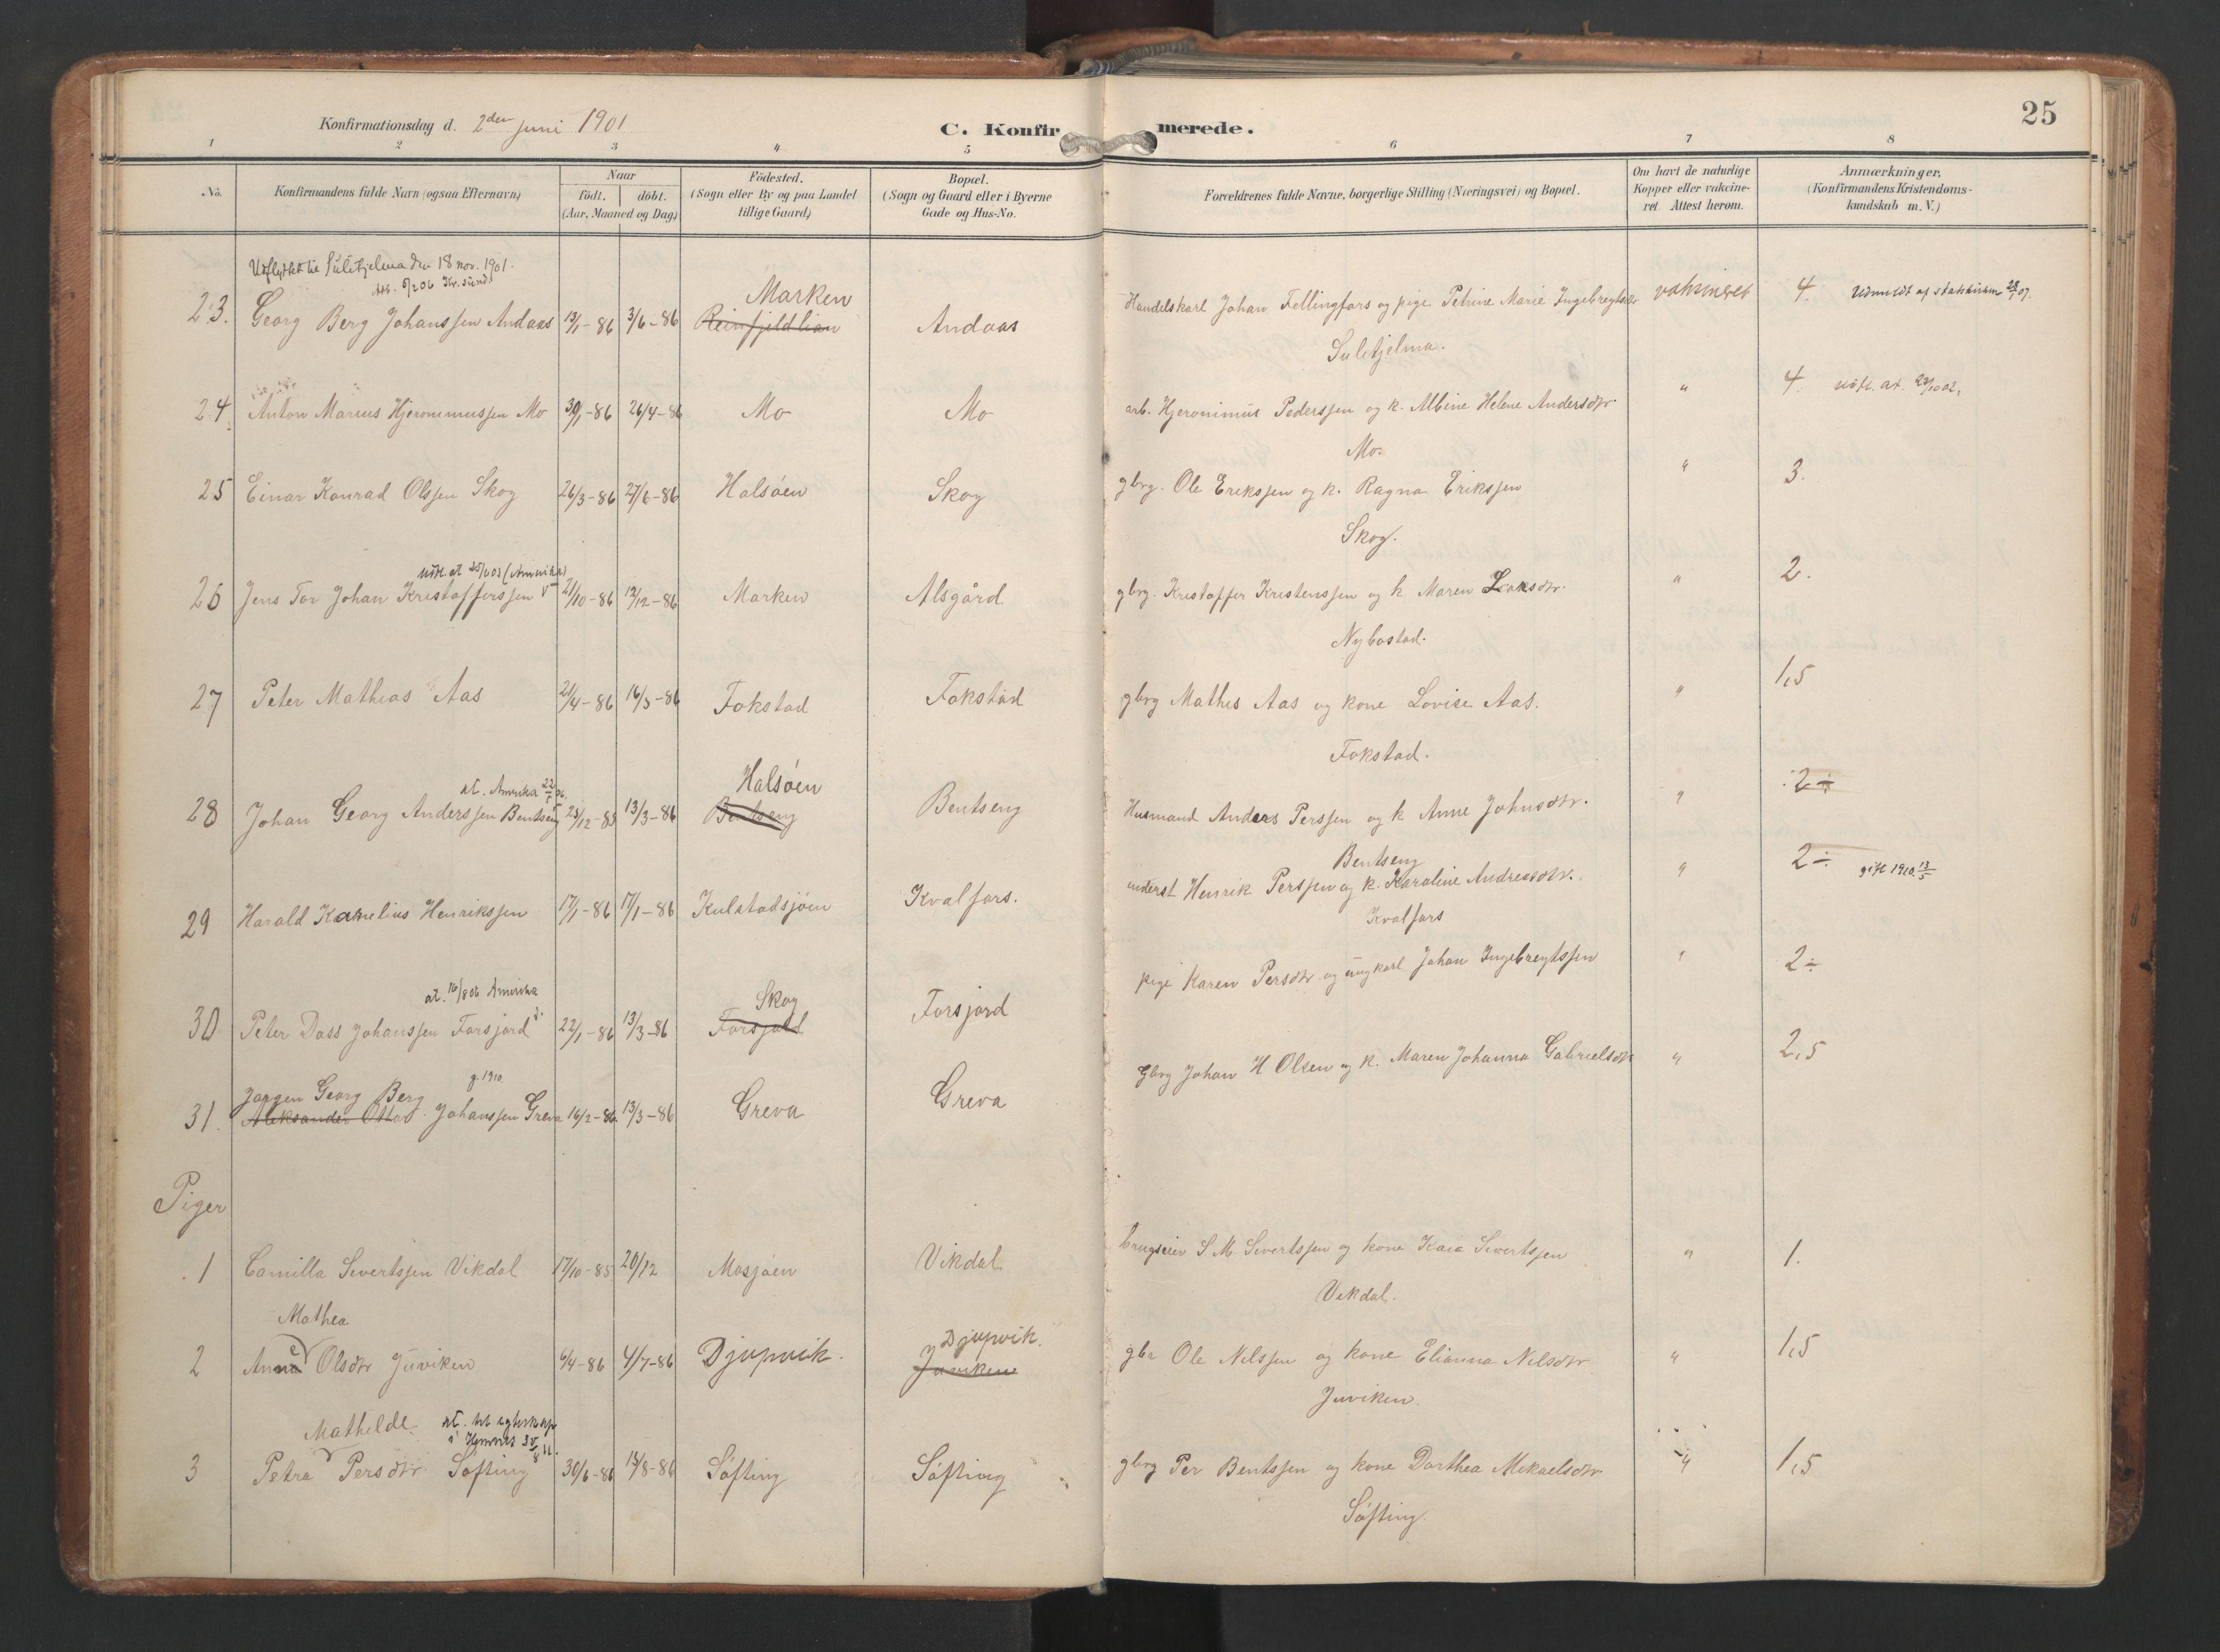 25
Konfirmationsdag d. 2den juni 1901
C. Konfirmerede.
1 2 3 4 5 6 7 8
No. Konfirmandens fulde Navn (ogsaa Efternavn) Naar født. døbt. (Aar, Maaned og Dag) Fødested. (Sogn eller By og paa Landet tillige Gaard) Bopæl. (Sogn og Gaard eller i Byerne Gade og Hus-No. Forældrenes fulde Navne, borgerlige Stilling (Næringsvei) og Bopæl. Om havt de naturlige Kopper eller vakcineret. Attest herom. Anmærkninger. (Konfirmandens Kristendomskundskab m. V.)
Udflyttet til Sulitjelma den 18 nov. 1901.
Att. 6/2 06 Kr.sund
Marken
23. Georg Berg Johanssen Andaas 13/1-86 3/6-86 Reinfjeldlian Andaas Handelskarl Johan Fellingfors og pige Petrine Marie Ingebregtsdtr vaksineret 4. Udmeldt af statskirken 28/1 07.
Sulitjelma.
24. Anton Marius Hjeronimussen Mo 30/1-86 26/4-86 Mo Mo arb. Hjeronimus Pederssen og k. Albine Helene Andersdtr. " 4. udfl. at. 29/10 02.
Mo.
25 Einar Konrad Olssen Skog 26/3-86 27/6-86 Halsøen Skog gbrg. Ole Erikssen og k. Ragna Erikssen " 3.
Skog.
udfl. at 25/6 03 (Amerika)
26 Jens Tor Johan Kristofferssen 21/10-86 12/12-86 Marken Alsgård gbrg. Kristoffer Kristenssen og k Maren Larsdtr. " 2.
Nybostad.
27 Peter Mathias Aas 21/4-86 16/5-86 Fokstad Fokstad gbrg Mathis Aas og kone Lovise Aas. " 1,5
Fokstad.
at. Amerika 22/5 06.
Halsøen
28 Johan Georg Anderssen Bentseng 25/12-85 13/3-86 Bentseng Bentseng Husmand Anders Perssen og k Anne Johnsdtr. " 2÷
Bentseng
29 Harald Kornelius Henrikssen 17/1-86 17/1-86 Kulstadsjøen Kvalfors. inderst Henrik Perssen og k. Karoline Andreasdtr. " 2÷ gift 1910 13/5
Kvalfors
at. 16/8 06 Amerika
Skog
30 Peter Dass Johanssen Forsjord 22/1-86 13/3-86 Forsjord Forsjord pige Karen Persdtr og ungkarl Johan Ingebregtssen " 2÷
g. 1910.
Jørgen Georg Berg
31. Aleksander Ottar Johanssen Greva 16/2-86 13/3-86 Greva Greva Gbrg Johan H Olsen og k. Maren Johanna Gabrielsdtr " 2,5
Piger
1 Camilla Sivertssen Vikdal 17/10-85 20/12 Mosjøen Vikdal brugseier S. M. Sivertssen og kone Kaia Sivertssen " 1.
Vikdal.
Mathea
Djupvik.
2 Anne Olsdtr Juviken 6/4-86 4/7-86 Djupvik. Juviken gbr Ole Nilssen og kone Elianna Nilsdtr " 1,5
Juviken.
Mathilde. at. til egteskap i Hemnes
3 Petra Persdtr. Søfting 30/6-86 15/8-86 Søfting Søfting gbrg Per Bentssen og kone Dorthea Mikaelsdtr. " 1,5
Søfting.